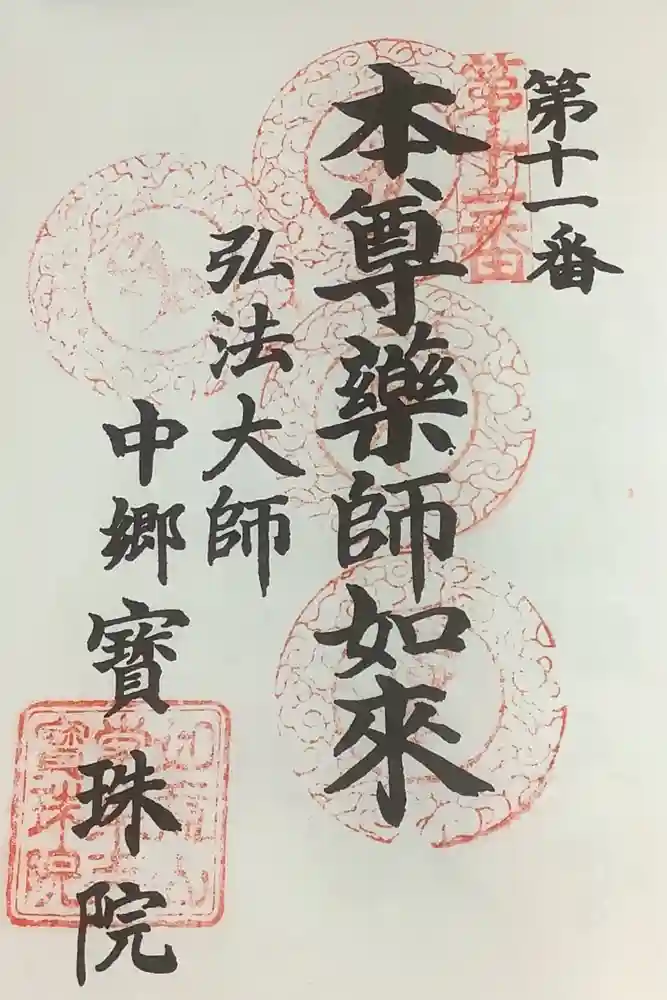 第十一番
第十一番
本尊藥師如來
弘法大師
中郷寶珠院
寶珠院